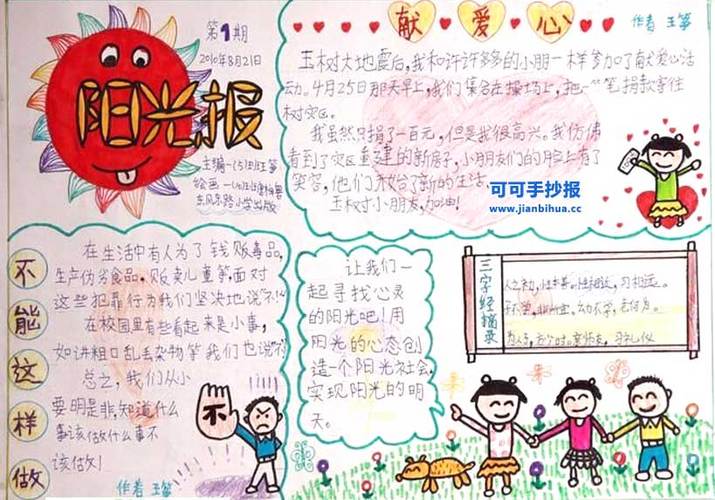 第1期
2010年8月21日
阳光报
主编一(5)班王筝
东风东路小学出版
献爱心
作者 王筝
玉树大地震后,我和许许多多的小朋一样参加了献爱心活
动。4月25日那天早上,我们集合在操场上,把一笔笔捐款寄往
树灾区。
我虽然只捐了一百元,但是我很高兴。我仿佛
看到了灾区重建的新房子,小朋友们的脸上有了
笑容,他们开始了新的生活。
玉树小朋友,加油!
可可手抄报
www.jianbihua.cc
不能这样做
在生活中有人为了钱贩毒品,
生产伪劣食品,贩卖儿童等,面对
这些犯罪行为我们坚决地说“不!”
在校园里有些看起来是小事,
如讲粗口乱丢杂物等我们也说“不”
总之,我们从小
要明是非知道什么
事该做什么事不
该做!
作者 王筝
不
让我们一
起寻找心灵
的阳光吧!用
阳光的心态创
造一个阳光社会,
实现阳光的明
天。
三字经摘录
人之初,性本善。性相近,习相远。
为人子,方少时。亲师友,习礼仪